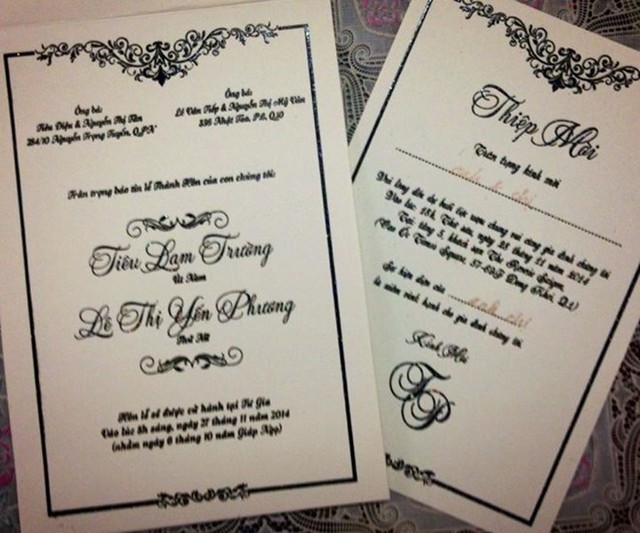 Ông bà:
Tiêu Diệu & Nguyễn Thị Tân
284/10 Nguyễn Trọng Tuyển, Q.PN
Ông bà:
Lê Văn Tiếp & Nguyễn Thị Mỹ Vân
335 Nhật Tảo, P.8, Q.10
Trân trọng báo tin lễ Thành Hôn của con chúng tôi:
Tiêu Lam Trường
Út Nam
Lê Thị Yến Phương
Thứ Nữ
Hôn lễ sẽ được cử hành tại Tư Gia
Vào lúc 8h sáng, ngày 27 tháng 11 năm 2014
(nhằm ngày 6 tháng 10 năm Giáp Ngọ)
Thiệp Mời
Trân trọng kính mời
Vui lòng đến dự buổi tiệc rượu chung vui cùng gia đình chúng tôi
Vào lúc: 18h, Thứ sáu, ngày 28 tháng 11 năm 2014
Tại: tầng 5, khách sạn The Reverie Saigon,
Times Square, Đồng Khởi, Q.1)
Sự hiện diện của
là niềm vinh hạnh cho gia đình chúng tôi.
Kính Mời
TP